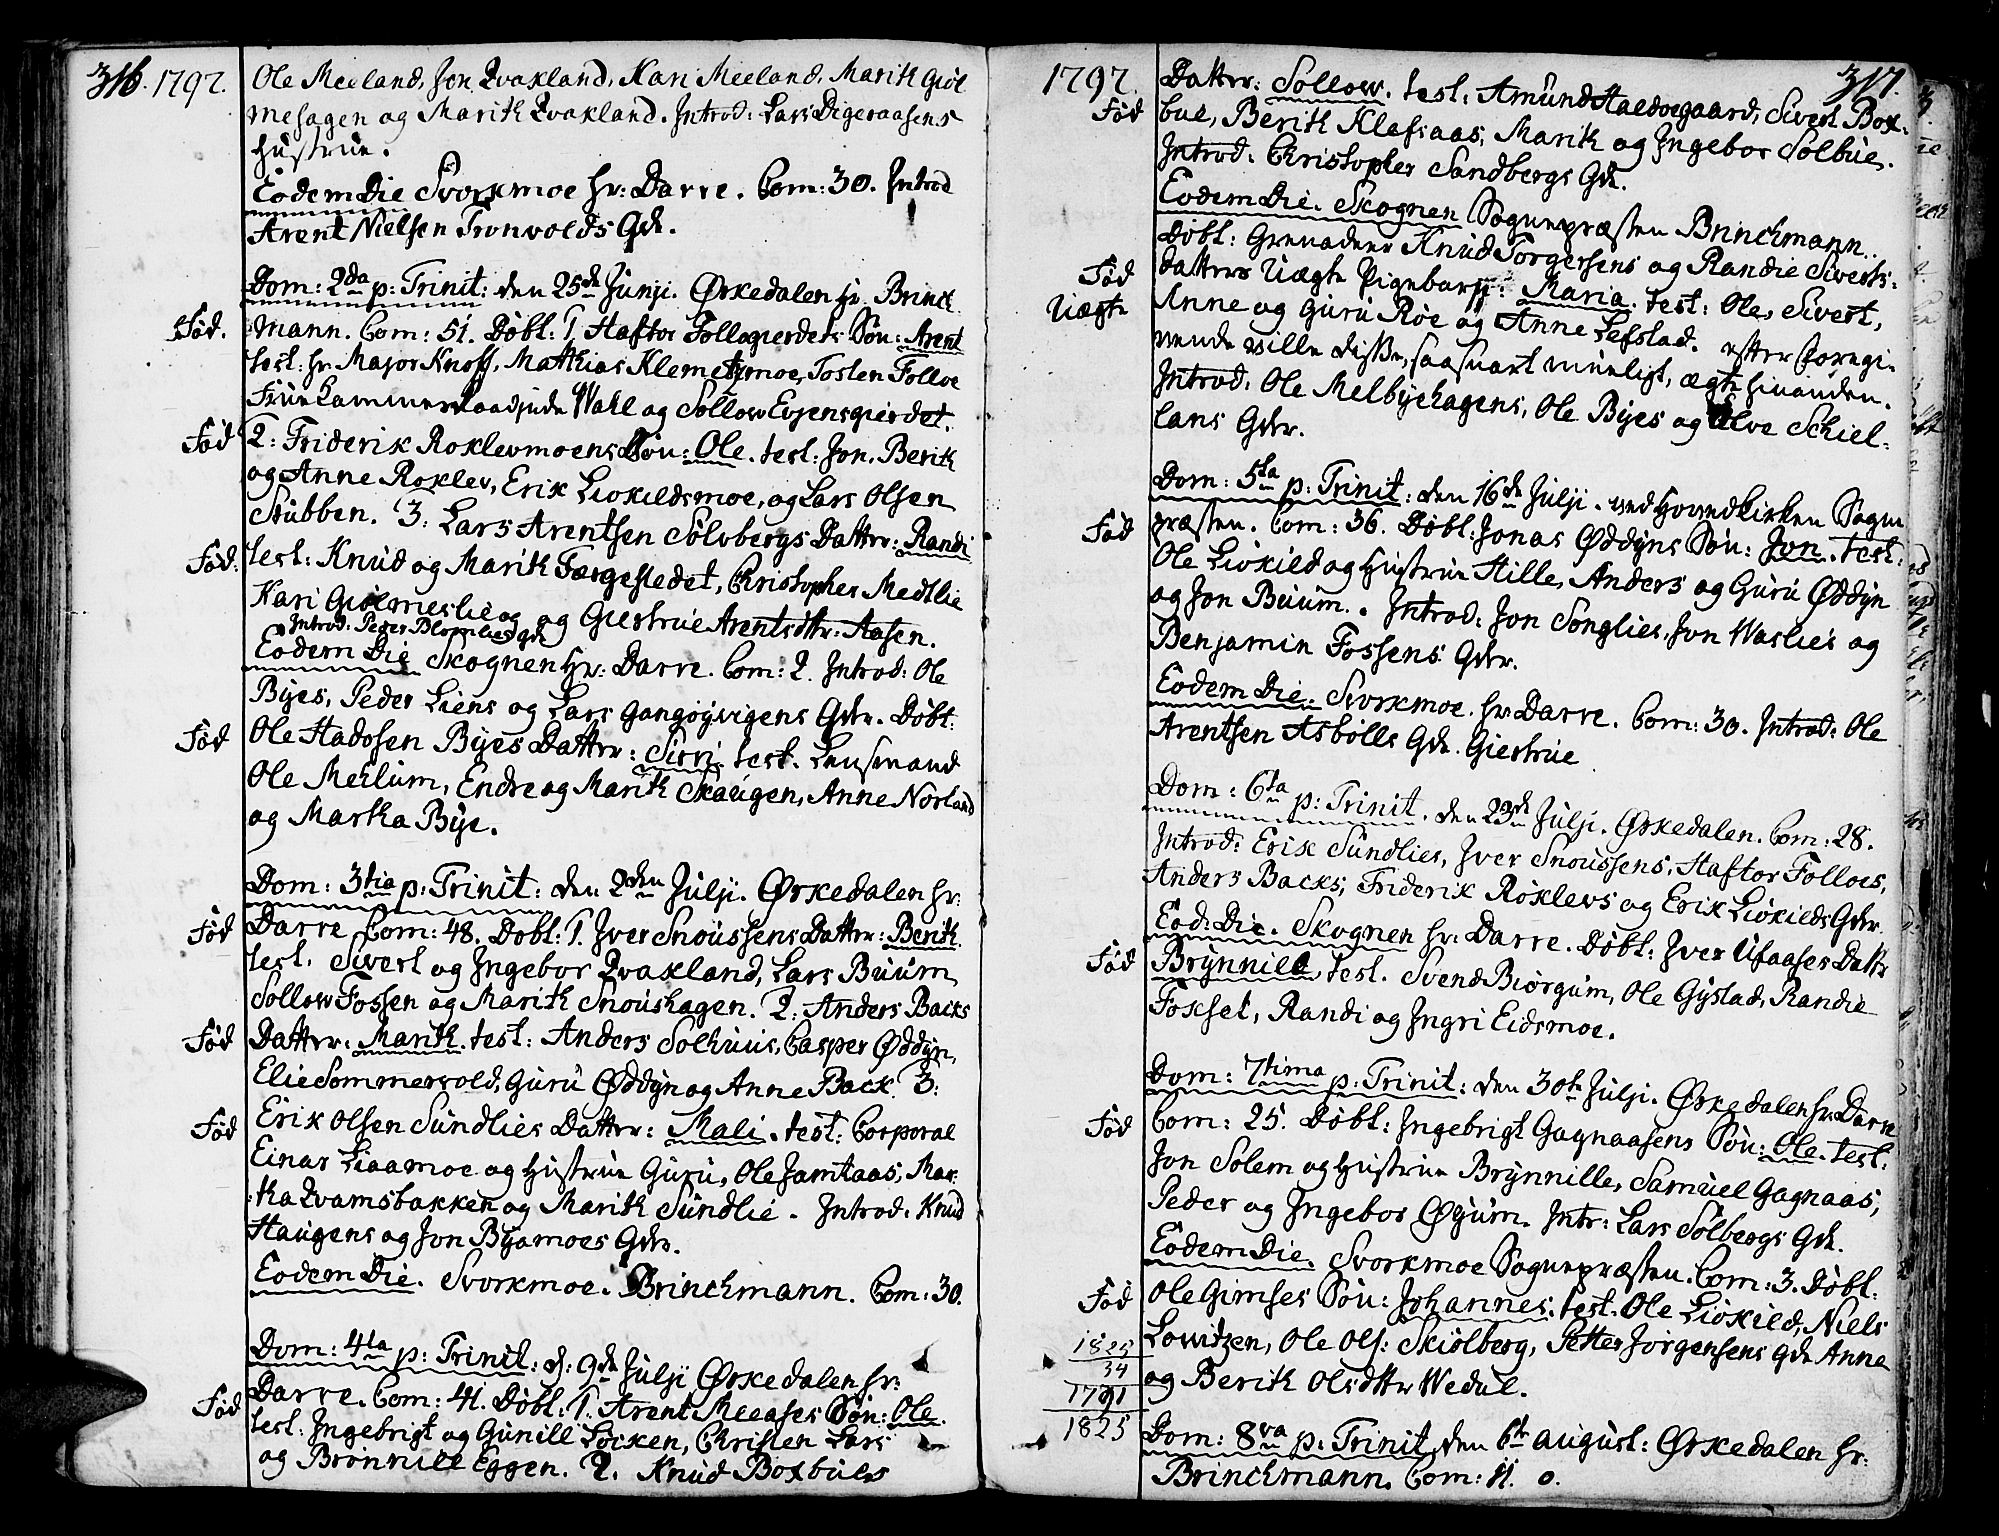 316. 1797.
Ole Meeland, Jon Qvakland, Kari Meeland, Marith Giöl
mesagen og Marith Qvakland. Introd: Lars Digeraasens
Hustrue.
Eodem Die Svorkmoe Hr: Darre. Com: 30. Introd
Arent Nielsen Tronvolds Qde.
Dom: 2da p: Trinit: den 25de Junji. Ørkedalen Hr. Brinck
Fød.
mann. Com: 51. Døbt: 1 Haftor Follogierdets Søn: Arent
test: Hr Major Knoff, Mathias Klemetzmoe, Tosten Folloe
Frue Kammerraadinde Wahl og Sollow Evjensgierdet.
Fød
2: Friderik Roklevmoens Søn: Ole. test: Jon, Berith
og Anne Roklev, Erik Liokildsmoe, og Lars Olsen
Stubben. 3: Lars Arentsen Sølvbergs Datter: Randi
Fød.
test: Knud og Marith Færgestedet, Christopher Medlie
Kari Giölmeslie og Giertrue Arentsdtr: Aasen.
Introd: Peder Blomlies Qde
Eodem Die Skognen Hr: Darre. Com: 2. Introd: Ole
Byes, Peder Liens og Lars Gangöyvigens Qdr. Døbt:
Fød
Ole Hadosen Byes Datter: Sirri. test. Lensmand
Ole Merlum, Endre og Marith Skaugen, Anne Norland
og Martha Bye.
Dom: 3tia p: Trinit: den 2den Julji. Ørkedalen Hr:
Fød
Darre Com: 48. Døbt: 1. Iver Snoussens Datter: Berith
test. Sivert og Ingebor Qvakland, Lars Buum,
Sollow Fossen og Marith Snoushagen. 2: Anders Backs
Fød
Datter: Marith. test: Anders Solhuus, Casper Øddyn,
Elie Sommervold, Guru Øddyn og Anne Back 3:
Fød
Erik Olsen Sundlies Datter: Mali. test: Corporal
Einar Liaamoe og Hustrue Guru, Ole Jamtaas, Mar¬
tha Qvamsbakken og Marith Sundlie. Introd: Knud
Haugens og Jon Byamoes Qdr.
Eodem Die. Svorkmoe. Brinchmann. Com: 30.
Dom: 4ta p: Trinit: d: 9de Julji Ørkedalen Hr:
Fød
Darre. Com: 41. Døbt: 1. Arent Meeases Søn: Ole.
test: Ingebrigt og Gunill Løcken, Christen Lars
og Brønnild Eggen. 2. Knud Boxbues
1797. 317.
Datter: Sollow. test: Amund Haldorgaard, Sivert Box¬
Fød
bue, Berith Klefsaas, Marith og Ingebor Solbue.
Introd: Christopher Sandbergs Qde.
Eodem Die. Skognen Sognepræsten Brinchmann.
Døbt: Grenadeer Knud Torgersens og Randie Siverts¬
Fød
datters Uægte Pigebarn: Maria. test: Ole, Sivert,
Uægte
Anne og Guru Røe og Anne Lefstad. efter foregi¬
vende ville disse, saasnart mueligt, ægte hinanden.
Introd: Ole Melbyehagens, Ole Byes og Alve Schiel¬
lans Qdr.
Dom: 5ta p: Trinit: den 16de Julji. ved Hovedkirken Sogne
Fød
præsten. Com: 36. Døbt: Jonas Øddyns Søn: Jon. test:
Ole Liokild og Hustrue Hille, Anders og Guru Øddyn
og Jon Buum. Introd: Jon Songlies, Jon Waslies og
Benjamin Fossens Qdr.
Eodem Die. Svorkmoe. Hr: Darre. Com: 30. Introd: Ole
Arentsen Asbölls Qde Giertrue
Dom: 6ta p: Trinit. den 23de Julji. Ørkedalen. Com: 28.
Introd: Erik Sundlies, Iver Snoussens, Haftor Folloes,
Anders Backs, Friderik Roklevs og Erik Liokilds Qdr.
Eod: Die. Skognen Hr: Darre. Døbt: Iver Ufaases Dattr
Fød
Brynnild. test. Svend Biørgum, Ole Gystad, Randie
Foxset, Randi og Ingri Eidsmoe.
Dom: 7tima p: Trinit: den 30te Julji. Ørkedalen Hr: Darre
Fød
Com: 25. Døbt: Ingebrigt Gagnaasens Søn: Ole. test:
Jon Solem og Hustrue Brynnille, Samuel Gagnaas,
Peder og Ingebor Øyum. Intr: Lars Sølbergs Qde.
Eodem Die. Svorkmoe Sognepræsten. Com: 3. Døbt:
Fød
Ole Gimses Søn: Johannes. test. Ole Liokild, Niels
1825
Lowitzen, Ole Ols: Skiölberg, Petter Jörgensens Qde Anne
34
og Berith Olsdttr Wedul.
1791
1825
Dom: 8va p: Trinit. den 6te August: Ørkedalen Hr:
Brinchmann. Com: 11. 0.